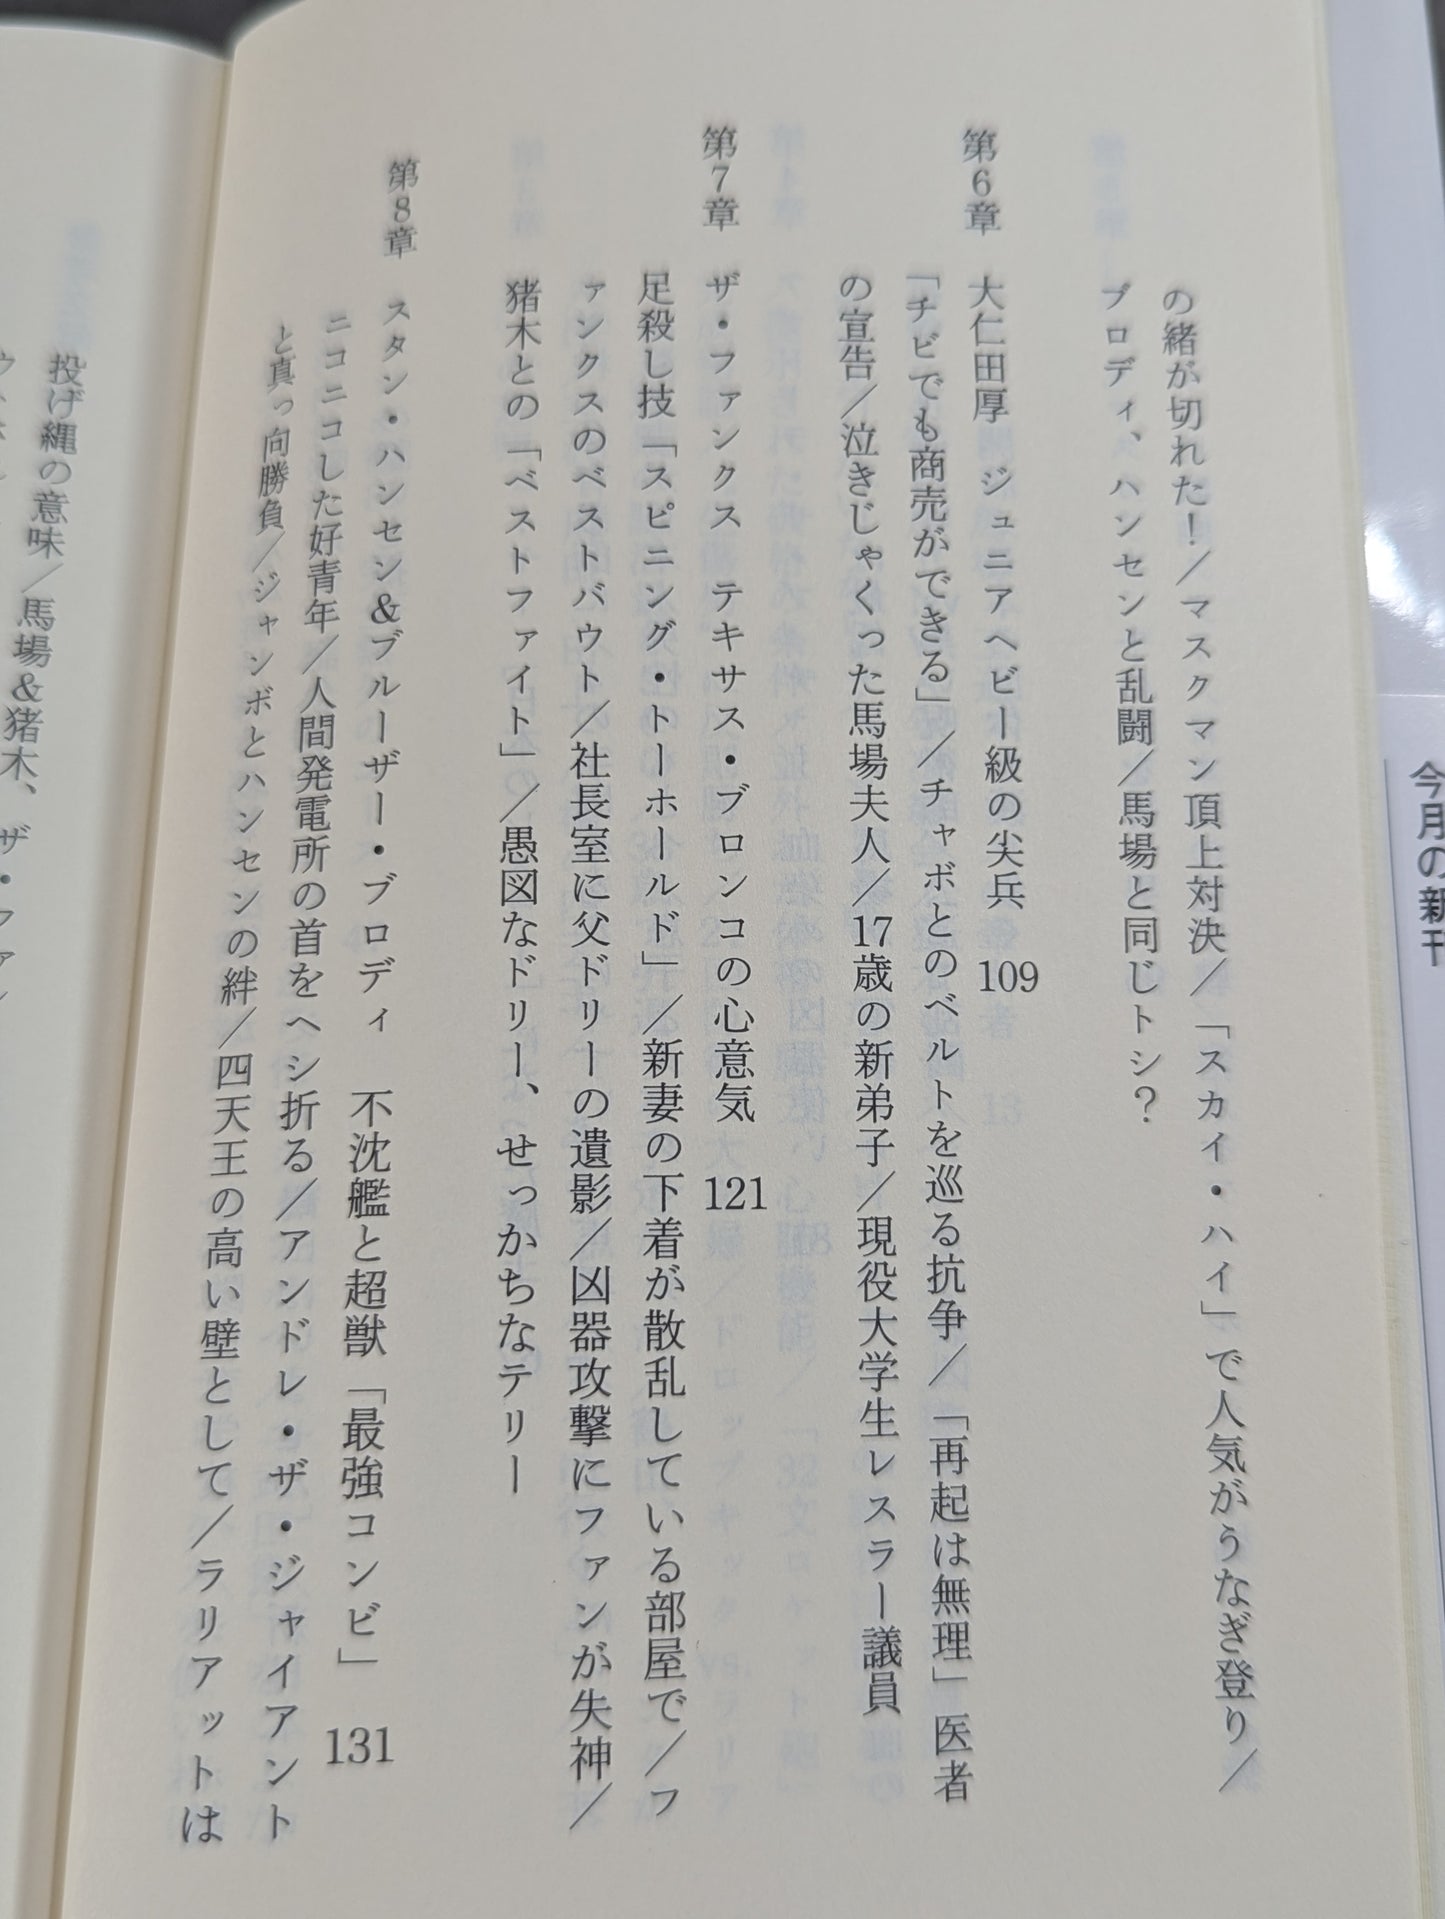 の緒が切れた！／マスクマン頂上対決／「スカイ・ハイ」で人気がうなぎ登り／
ブロディ、ハンセンと乱闘／馬場と同じトシ？
第6章　大仁田厚　ジュニアヘビー級の尖兵　109
「チビでも商売ができる」／チャボとのベルトを巡る抗争／「再起は無理」医者
の宣告／泣きじゃくった馬場夫人／17歳の新弟子／現役大学生レスラー議員
第7章　ザ・ファンクス　テキサス・ブロンコの心意気　121
足殺し技「スピニング・トーホールド」／新妻の下着が散乱している部屋で／フ
ァンクスのベストバウト／社長室に父ドリーの遺影／凶器攻撃にファンが失神／
猪木との「ベストファイト」／愚図なドリー、せっかちなテリー
第8章　スタン・ハンセン&ブルーザー・ブロディ　不沈艦と超獣「最強コンビ」　131
ニコニコした好青年／人間発電所の首をヘシ折る／アンドレ・ザ・ジャイアント
と真っ向勝負／ジャンボとハンセンの絆／四天王の高い壁として／ラリアットは
投げ縄の意味／馬場&猪木、ザ・ファン
今月の新刊